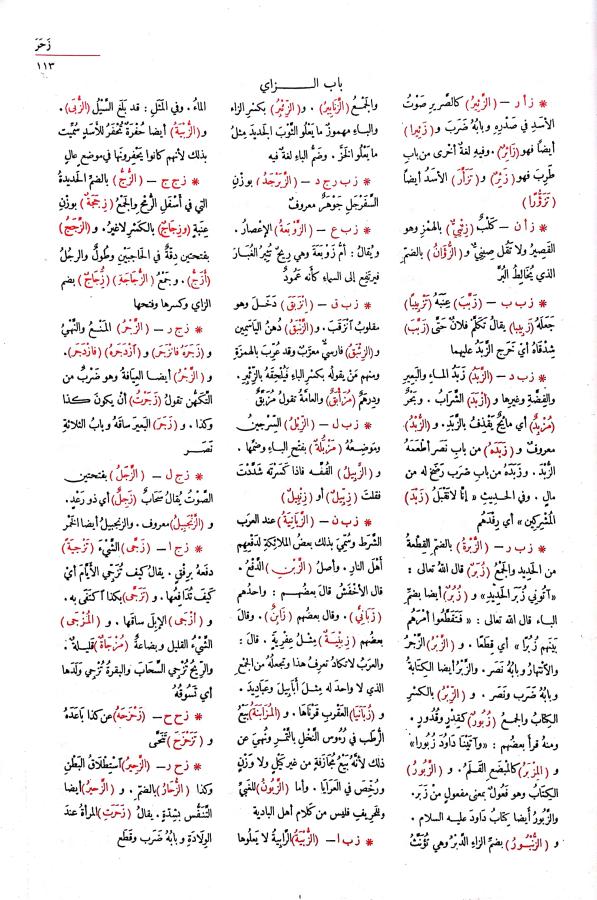 زَحَرَ
١١٣
باب الــــزاي
* ز أ ر – (الزَّئِيرُ) كالصَّرِيرِ صَوْتُ
الأسَدِ في صَدْرِهِ وبابُهُ ضَرَبَ و (زَئيرا)
أيضاً فهو (زَائِرٌ) . وفيه لغةٌ أُخرى من بابِ
طَرِبَ فهو (زَئِرٌ) و (تَزَأَّرَ) الأسَدُ أيضاً
(تَزَؤُّرًا)
* ز أ ن – كَلْبٌ (زِئْنِيٌّ) بالهمْزِ وهو
القَصِيرُ ولا تَقُل صِينيٌّ و (الزُّؤَانُ) بالضمِّ
الذي يُخالِطُ البُرَّ
* ز ب ب – (زَبَّبَ) عِنَبَهُ (تَزْبيباً)
جَعَلَهُ (زَبيبا) يقالُ تَكَلَّمَ فلانٌ حتَّى (زَبَّبَ)
شِدْقاهُ أي خَرَجَ الزَّبَدُ عليهما
* ز ب د – (الزَّبَدُ) زَبَدُ الماءِ والبَعِيرِ
والفِضَّةِ وغيرِها و (أَزْبَدَ) الشَّرابُ . وبَحْرٌ
(مُزْبِدٌ) أي مائجٌ يَقْذِفُ بالزَّبَدِ . و (الزُّبْدُ)
معروفٌ و (زَبَدَهُ) من بابِ نَصَرَ أطعَمَهُ
الزُّبْدَ . وزَبَدَهُ من بابِ ضَرَبَ رَضَخَ له من
مالٍ . وفي الحديثِ « إنَّا لا نَقْبَلُ (زَبْدَ)
المُشْرِكِينَ » أي رِفْدَهُم
* ز ب ر – (الزُّبْرَةُ) بالضمِّ القِطْعةُ
من الحديدِ والجَمْعُ (زُبَرٌ) قال اللهُ تعالى :
« آتُونِي زُبَرَ الحَدِيدِ » و (زُبُرٌ) أيضا بضمِّ
الباءِ قال اللهُ تعالى : « فتَقَطَّعُوا أمْرَهُم
بَيْنَهُم زُبُرًا » أي قِطَعا . و (الزَّبْرُ) الزَّجْرُ
والانْتِهارُ وبابُهُ نَصَرَ . والزَّبْرُ أيضا الكِتَابَةُ
وبابُهُ ضَرَبَ ونَصَرَ . و (الزِّبْرُ) بالكسْرِ
الكِتابُ والجمعُ (زُبُورٌ) كقِدْرٍ وقُدُورٍ .
ومنه قرأ بعضُهم : « وآتَيْنَا دَاوُدَ زُبُورا »
و (المِزْبَرُ) كالمِبْضَعِ القَلَمُ . و (الزَّبُورُ)
الكِتَابُ وهو فَعُولٌ بمعنى مفعولٍ من زَبَرَ .
والزَّبُورُ أيضا كِتابُ دَاودَ عليه السلام .
و (الزُّنْبُورُ) بضمِّ الزاءِ الدَّبْرُ وهي تُؤَنَّثُ
والجَمْعُ (الزَّنَابِيرُ) . و (الزِّئْبِرُ) بكسْرِ الزاءِ
والباءِ مهموزٌ ما يَعلُو الثَّوبَ الجديدَ مِثلُ
ما يَعلُو الخَزَّ . وضَمُّ الباءِ لغةٌ فيه
* ز ب ر ج د – (الزَّبَرْجَدُ) بوزنِ
السَّفَرْجَلِ جَوْهَرٌ معروفٌ
* ز ب ع – (الزَّوْبَعَةُ) الإعْصَارُ .
ويُقالُ : أُمُّ زَوْبَعَةَ وهي رِيحٌ تُثِيرُ الغُبَارَ
فيرتفِعُ إلى السماءِ كأنه عَمُودٌ
* ز ب ق – (انْزَبَقَ) دَخَلَ وهو
مقلوبُ انْزَقَبَ . و (الزَّنْبَقُ) دُهْنُ الياسَمِينِ
و (الزِّئْبَقُ) فارسيٌّ معرَّبٌ وقد عُرِّبَ بالهمزةِ
ومنهم مَن يقولُهُ بكسْرِ الباءِ فيُلْحِقُهُ بالزِّئْبِرِ .
ودِرهمٌ (مُزَأْبَقٌ) والعامةُ تقولُ مُزَبَّقٌ
* ز ب ل – (الزِّبْلُ) السِّرْجِينُ
ومَوْضِعُهُ (مَزْبَلَةٌ) بفتحِ الباءِ وضمِّها .
و (الزَّبيلُ) القُفَّةُ فاذا كَسَرْتَهُ شَدَّدْتَ
فقلتَ (زِبِّيلٌ) أو (زِنْبيلٌ)
* ز ب ن – (الزَّبَانِيَةُ) عند العربِ
الشُّرَطُ وسُمِّيَ بذلك بعضُ الملائكةِ لدَفْعِهِم
أهْلَ النارِ . وأصلُ (الزَّبْنِ) الدَّفْعُ .
قال الأخْفَشُ قال بعضُهــم : واحدُهم
(زَبانِي) . وقال بعضُهم (زَابِنٌ) . وقال
بعضُهم (زِبْنِيَةٌ) مِثلُ عِفْرِيةٍ . قالَ :
والعرَبُ لاتكادُ تَعرِفُ هذا وتجعلُهُ من الجَمْعِ
الذي لا واحدَ له مِثلُ أبَابيلَ وعَبَاديدَ .
و (زُبَانَيَا) العقربِ قَرْناها . و (المُزَابَنَةُ) بَيْعُ
الرُّطَبِ في رُءوسِ النَّخْلِ بالتَّمْرِ ونُهِيَ عن
ذلك لأنَّه بَيْعُ مُجازَفةٍ من غيرِ كَيْلٍ ولا وَزْنٍ
ورُخِّصَ في العَرَايا . وأما (الزَّبُونُ) للغَبِيِّ
وللحَرِيفِ فليس من كَلامِ أهلِ البادية
* ز ب ا – (الزُّبْيَةُ) الرَّابِيةُ لا يَعلُوها
الماءُ . وفي المَثَلِ : قد بَلَغَ السَّيْلُ (الزُّبَى) .
و (الزُّبْيَةُ) أيضا حُفرةٌ تُحْفَرُ للأسَدِ سُمِّيَتْ
بذلك لأنهم كانوا يَحْفِرونها في موضعٍ عالٍ
* ز ج ج – (الزُّجُّ) بالضمِّ الحديدةُ
التي في أسْفَلِ الرُّمْحِ والجَمْعُ (زِجَجَةٌ) بوزنِ
عِنَبةٍ (وزِجَاجٌ) بالكَسْرِ لاغيرُ . و (الزَّجَجُ)
بفتحتين دِقَّةٌ في الحَاجِبَيْنِ وطُولٌ والرجُلُ
(أَزَجُّ) . و جَمْعُ (الزُّجَاجَةِ) (زُجَاجٌ) بضمِ
الزاي وكسرِها وفتحِها
* ز ج ر – (الزَّجْرُ) المَنْعُ والنَّهْيُ
و (زَجَرَهُ فانْزَجَرَ) و (ازْدَجَرَهُ) (فازْدَجَرَ) .
و (الزَّجْرُ) أيضا العِيافةُ وهو ضَرْبٌ من
التَّكَهُّنِ تقولُ (زَجَرْتُ) أن يكونَ كذا
وكذا . و (زَجَرَ) البعيرَ ساقَهُ وبابُ الثلاثةِ
نَصَـرَ
* ز ج ل – (الزَّجَلُ) بفتحتين
الصَّوْتُ يُقالُ سَحَابٌ (زَجِلٌ) أي ذو رَعْدٍ .
و (الزَّنْجَبِيلُ) معروف . والزنجبيلُ أيضا الخَمْر
* ز ج ا – (زَجَّى) الشَّيْءَ (تَزْجِيَةً)
دَفَعَهُ بِرِفْقٍ . يقالُ كيفَ تُزَجِّي الأيَّامَ أيْ
كَيفَ تُدَافِعُها . و (تَزَجَّى) بكذا اكتَفى به .
و (أَزْجَى) الإبلَ ساقَها . و (المُزْجَى)
الشَّيْءُ القليل وبضاعةٌ (مُزْجَاةٌ) قَليلــةٌ .
والرِّيحُ تُزْجِي السَّحَابَ والبقَرةُ تُزْجِي ولَدَها
أي تَسُوقُهُ
* ز ح ح – (زَحْزَحَهُ) عن كذا باعَدَهُ
و (تَزَحْزَحَ) تَنَحَّى
* ز ح ر – (الزَّحِيرُ) اسْتِطْلاقُ البَطْنِ
وكذا (الزُّحَارُ) بالضمِّ . و (الزَّحِيرُ) أيضا
التَّنَفُّسُ بشِدَّةٍ . يقالُ (زَحَرَتِ) المرأةُ عندَ
الوِلَادَةِ و بابُهُ ضَرَب وقَطَع